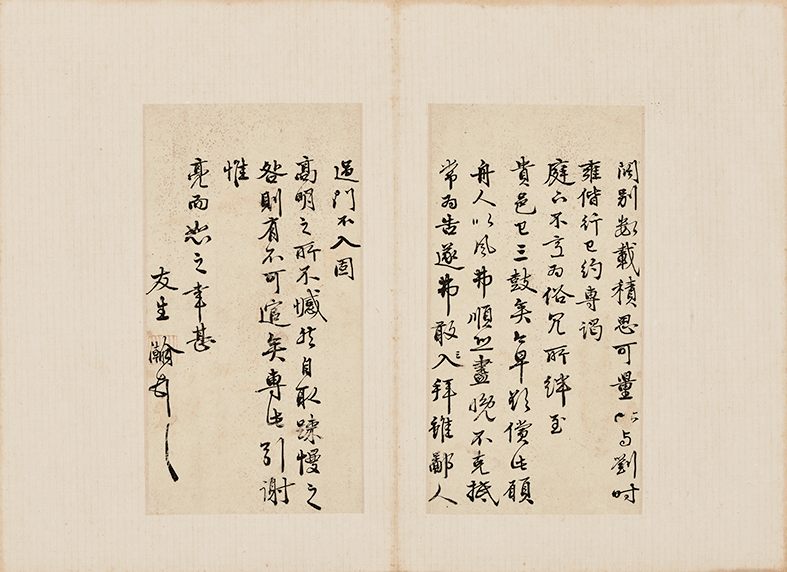 闊别數載積思可量昨与劉时
雍偕行已約専谒
庭下不为俗冗所絆至
貴邑已三鼓矣今早欲償此願
舟人以風弗順盡晚不克抵
常为告遂弗敢入拜雖鄙人
過门不入固
高明之所不憾然自取疎慢之
咎則有不可逭矣専此引谢
惟
亮而恕之幸甚
友生瀚